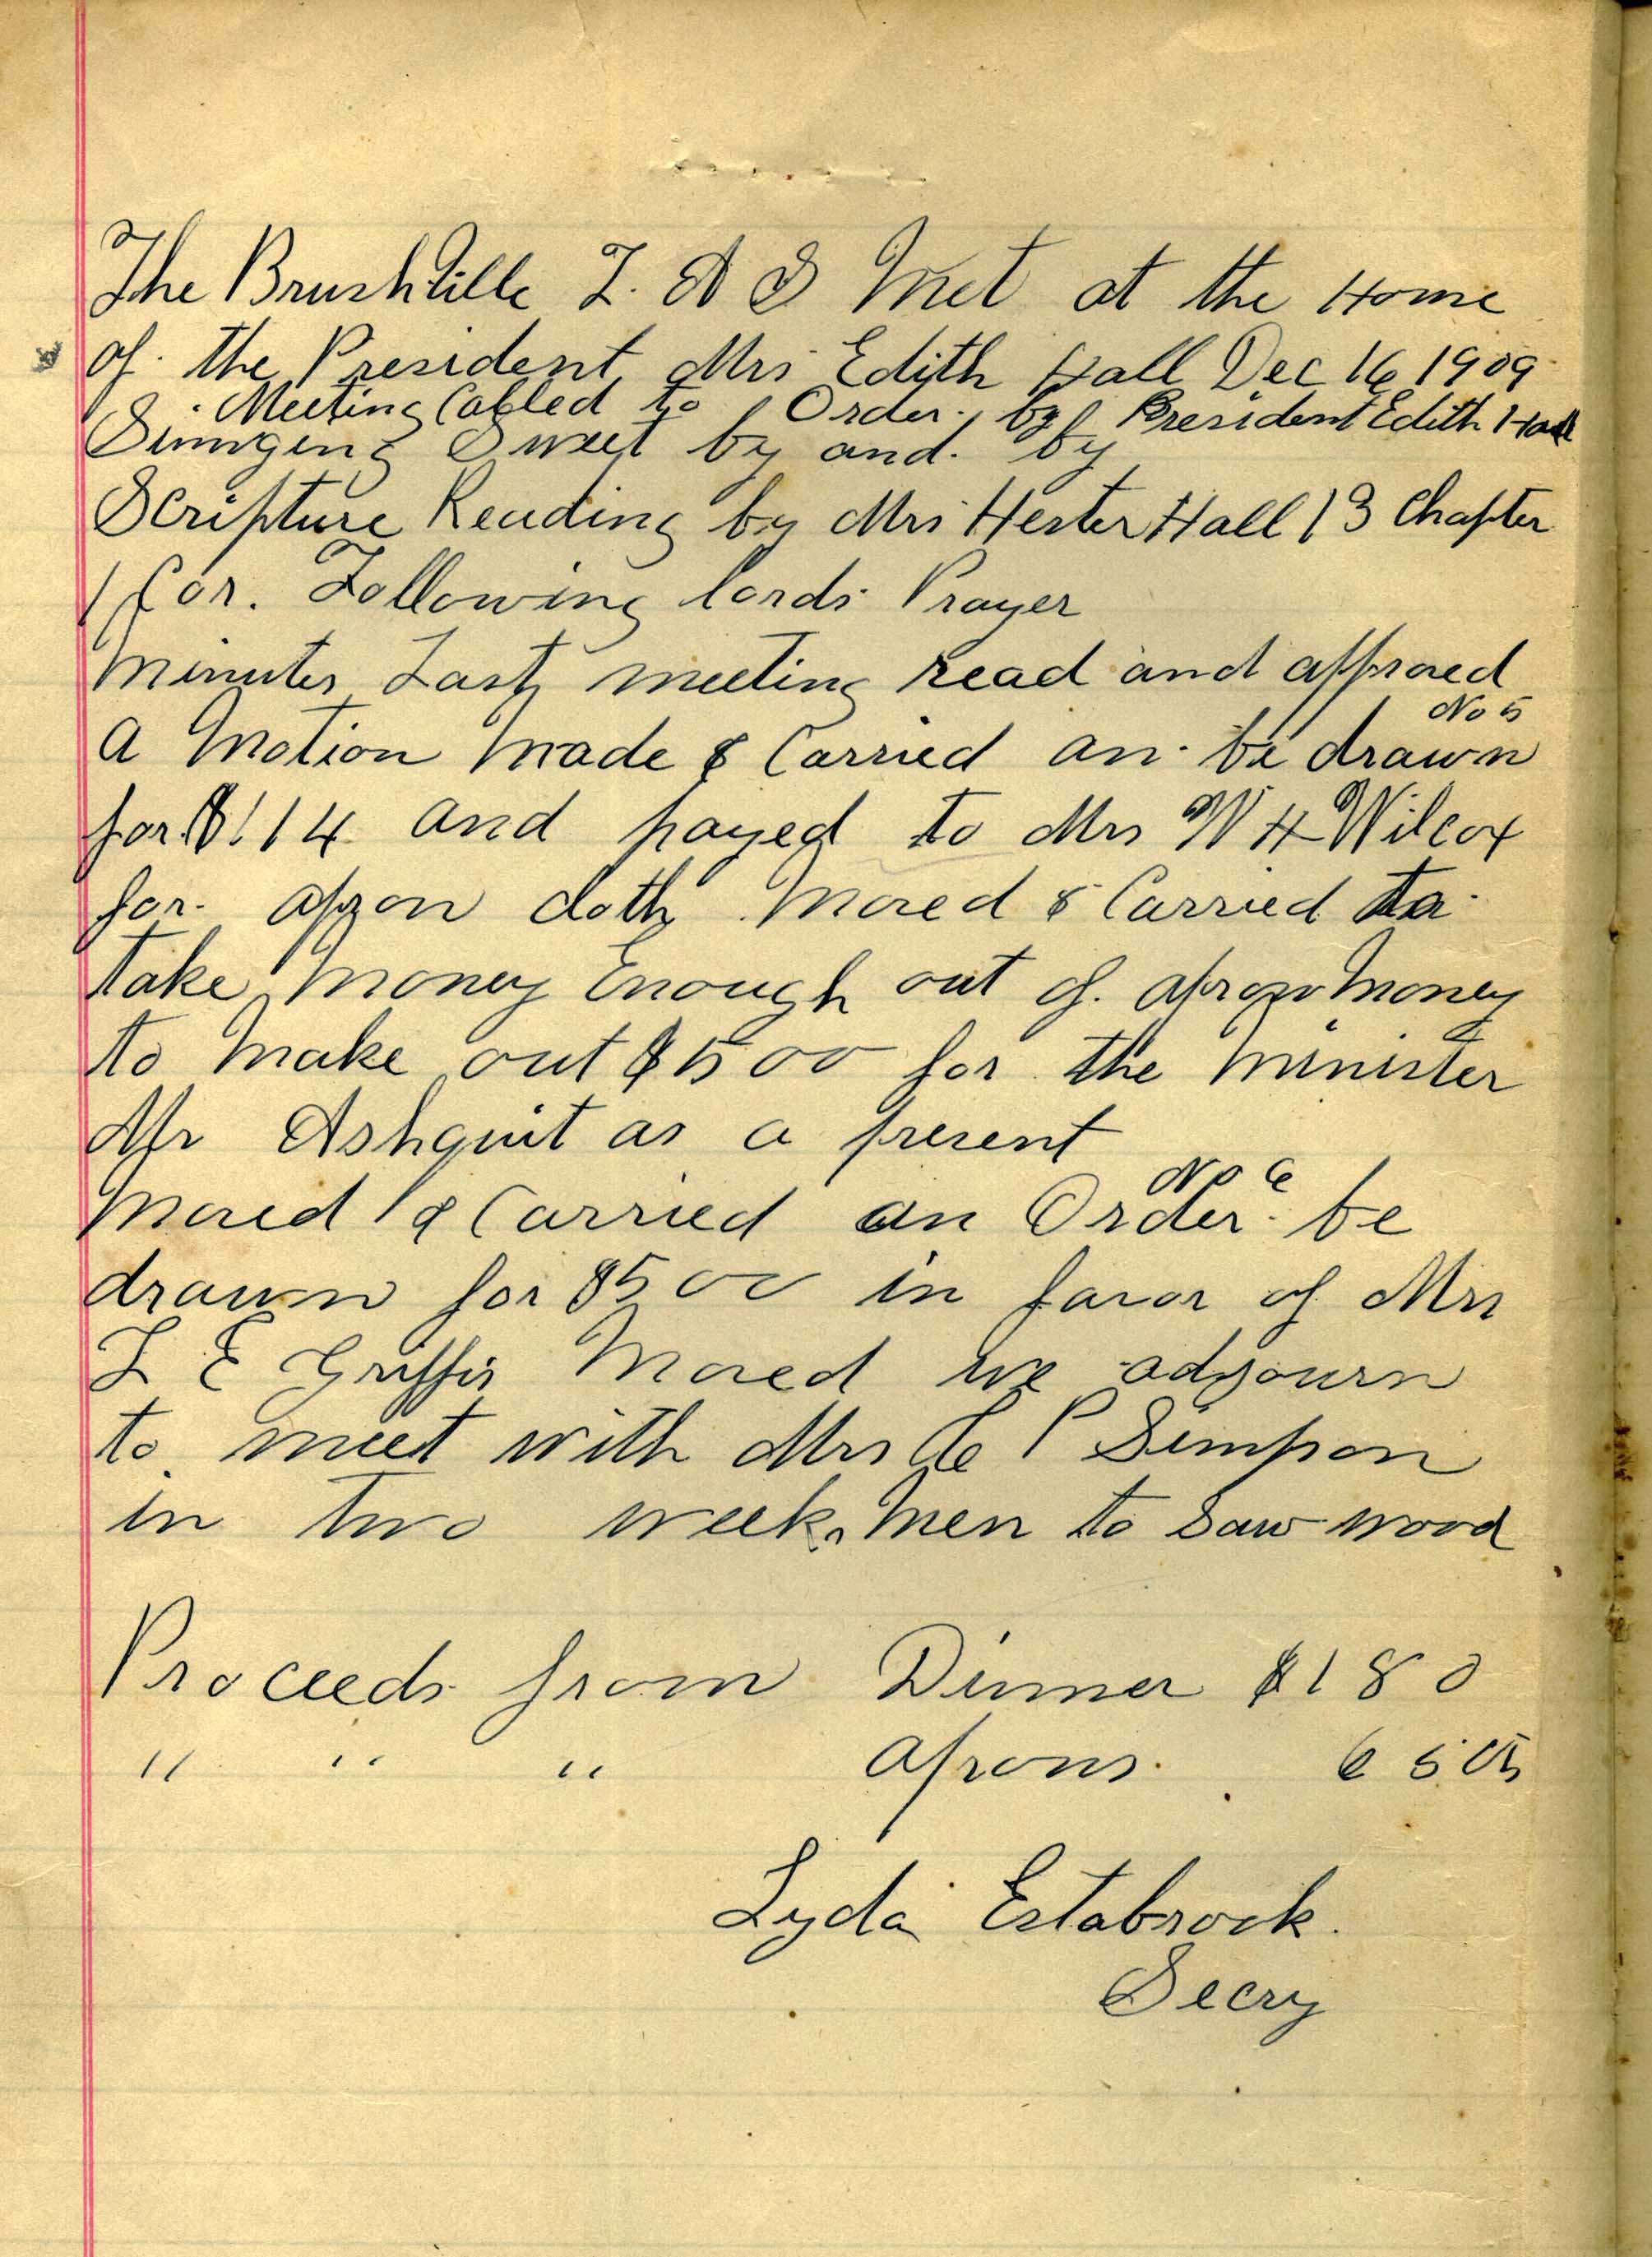 The Brushville L. A S Met at the Home
of the President Mrs Edith Hall Dec 16 1909
Meeting Called to Order by President Edith Hall
Sinngeng Sweet by and by
Scripture Reading by Mrs Hester Hall 13 Chapter
1 Cor. Following lords Prayer
Minutes Last meeting read and approed
No 5
A Motion Made & Carried an be drawn
for $114 and payed to Mrs W H Wilcox
for apron cloth Moved & Carried to
take Money Enough out of apron Money
to Make out $5 00 for the Minister
Mr Ashquit as a present
No 6
Moved & Carried an Order be
drawn for $5 00 in favor of Mrs
L E Griffis Moved we adjourn
to meet with Mrs C P Simpson
in two weeks Men to Saw wood
Proceeds from Dinner $1 80
" " " aprons 6 55
Lyda Estabrook
Secry